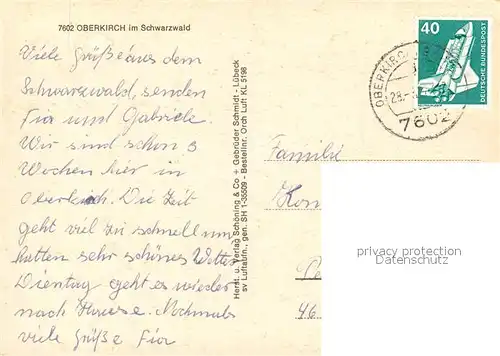 7602 OBERKIRCH im Schwarzwald
Viele Grüße aus dem
Schwarzwald, senden
Fior und Gabriele.
Wir sind schon 3
Wochen hier in
Oberkirch. Die Zeit
geht viel zu schnell um
hatten sehr schönes Wetter
Dienstag geht es wieder
nach Hause. Nochmals
viele Grüße Fior
Horst. u. Verlag Schöning & Co + Gebrüder Schmidt - Lübeck
sv Luftaufn., gen. SH 1-35509 - Bestellnr. Orch Luft KL 5198
40
DEUTSCHE BUNDESPOST
OBERKIRCH
28.
7602
Familie
46
privacy protection
Datenschutz